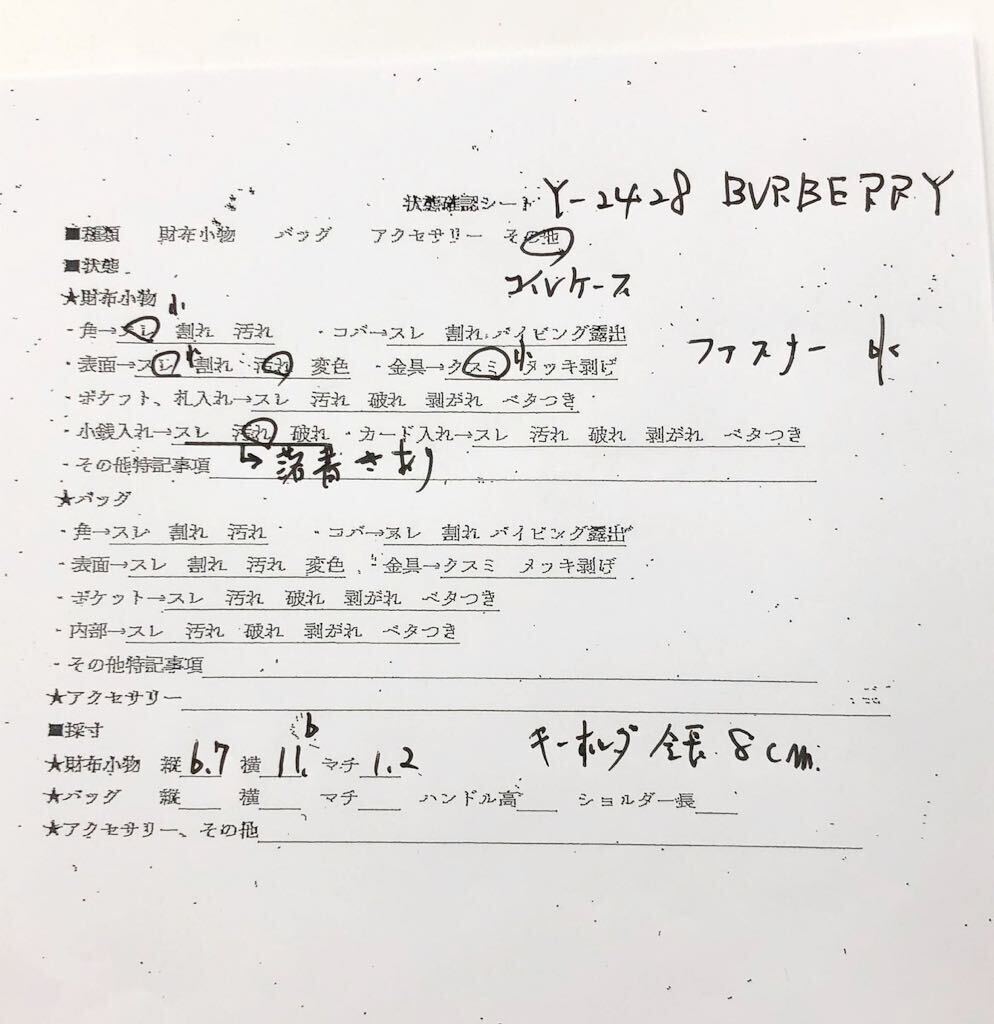 状態確認シート Y-2428 BURBERRY
■種類 財布小物 バッグ アクセサリー その他
コインケース
■状態
★財布小物 小
・角→スレ 割れ 汚れ ・コバ→スレ 割れ パイピング露出
ファスナー 小
・表面→スレ 小 割れ 汚れ 変色 ・金具→クスミ 小 メッキ剥げ
・ポケット、札入れ→スレ 汚れ 破れ 剥がれ ベタつき
・小銭入れ→スレ 汚れ 破れ ・カード入れ→スレ 汚れ 破れ 剥がれ ベタつき
↳落書きあり
・その他特記事項
★バッグ
・角→スレ 割れ 汚れ ・コバ→スレ 割れ パイピング露出
・表面→スレ 割れ 汚れ 変色 ・金具→クスミ メッキ剥げ
・ポケット→スレ 汚れ 破れ 剥がれ ベタつき
・内部→スレ 汚れ 破れ 剥がれ ベタつき
・その他特記事項
★アクセサリー
■採寸
★財布小物 縦 6.7 横 11.6 マチ 1.2 キーホルダ 全長 8cm.
★バッグ 縦 横 マチ ハンドル高 ショルダー長
★アクセサリー、その他